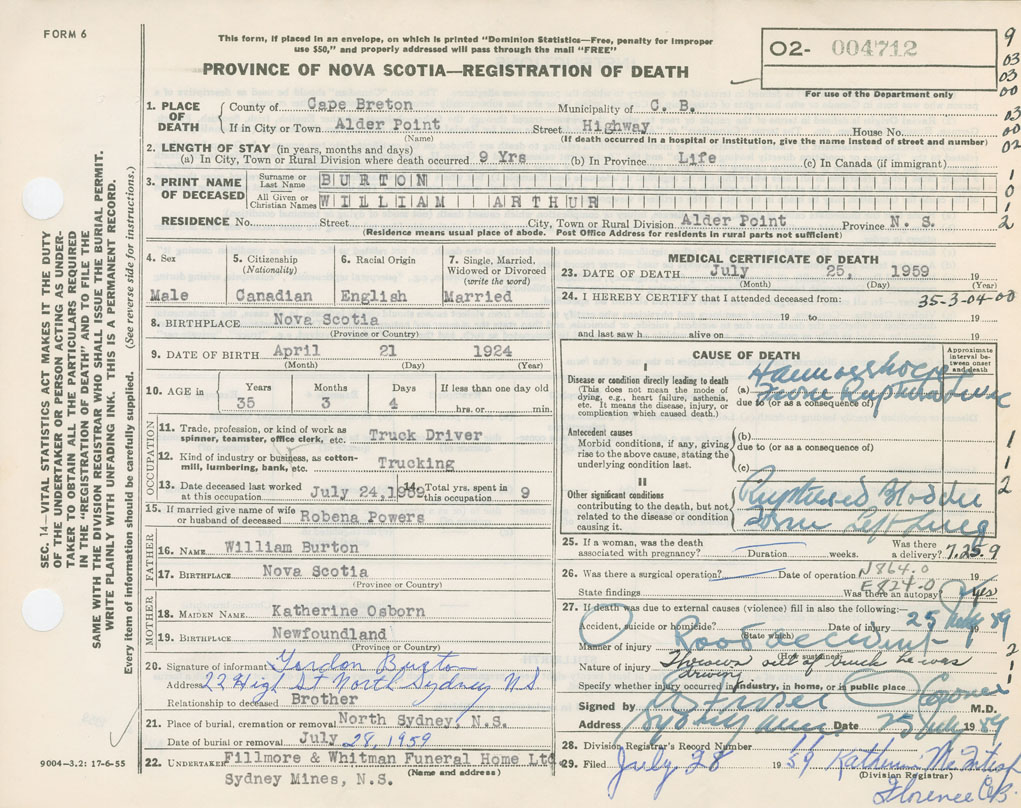 FORM 6
This form, if placed in an envelope, on which is printed "Dominion Statistics—Free, penalty for improper
use $50," and properly addressed will pass through the mail "FREE"
PROVINCE OF NOVA SCOTIA—REGISTRATION OF DEATH
O2- 004712
For use of the Department only
9
03
03
00
03
00
02
1
0
1
2
1. PLACE OF DEATH
County of Cape Breton Municipality of C. B.
If in City or Town Alder Point Street Highway House No.
(Name) (If death occurred in a hospital or institution, give the name instead of street and number)
2. LENGTH OF STAY (in years, months and days)
(a) In City, Town or Rural Division where death occurred 9 Yrs (b) In Province Life (c) In Canada (if immigrant)
3. PRINT NAME OF DECEASED
Surname or Last Name BURTON
All Given or Christian Names WILLIAM ARTHUR
RESIDENCE No. Street City, Town or Rural Division Alder Point Province N. S.
(Residence means usual place of abode. Post Office Address for residents in rural parts not sufficient)
4. Sex
Male
5. Citizenship (Nationality)
Canadian
6. Racial Origin
English
7. Single, Married, Widowed or Divorced (write the word)
Married
8. BIRTHPLACE Nova Scotia
(Province or Country)
9. DATE OF BIRTH April 21 1924
(Month) (Day) (Year)
10. AGE in Years Months Days If less than one day old
35 3 4 hrs. or min.
OCCUPATION
11. Trade, profession, or kind of work as
spinner, teamster, office clerk, etc. Truck Driver
12. Kind of industry or business, as cotton-
mill, lumbering, bank, etc. Trucking
13. Date deceased last worked
at this occupation July 24, 1959
14. Total yrs. spent in
this occupation 9
15. If married give name of wife
or husband of deceased Robena Powers
FATHER
16. NAME William Burton
17. BIRTHPLACE Nova Scotia
(Province or Country)
MOTHER
18. MAIDEN NAME Katherine Osborn
19. BIRTHPLACE Newfoundland
(Province or Country)
20. Signature of informant Gordon Burton
Address 22 High St North Sydney N.S.
Relationship to deceased Brother
21. Place of burial, cremation or removal North Sydney, N.S.
Date of burial or removal July 28, 1959
22. UNDERTAKER Fillmore & Whitman Funeral Home Ltd
(Name and address)
Sydney Mines, N.S.
MEDICAL CERTIFICATE OF DEATH
23. DATE OF DEATH July 25, 1959 19
(Month) (Day) (Year)
24. I HEREBY CERTIFY that I attended deceased from:
35-3-04-00
19 to 19
and last saw h alive on 19
CAUSE OF DEATH
Approximate interval between onset and death
I
Disease or condition directly leading to death
(This does not mean the mode of
dying, e.g., heart failure, asthenia,
etc. It means the disease, injury, or
complication which caused death.)
(a)
due to (or as a consequence of)
Antecedent causes
Morbid conditions, if any, giving
rise to the above cause, stating the
underlying condition last.
(b)
due to (or as a consequence of)
(c)
II
Other significant conditions
contributing to the death, but not
related to the disease or condition
causing it.
Ruptured
Left Lung
1
1
2
25. If a woman, was the death
associated with pregnancy? Duration weeks. Was there a delivery?
7.25.9
26. Was there a surgical operation? Date of operation 19
N864.0
E824.0
State findings Was there an autopsy Yes
27. If death was due to external causes (violence) fill in also the following:—
Accident, suicide or homicide? Date of injury 25 July 1959
(State which)
Manner of injury
(How sustained)
Nature of injury Thrown out of truck he was
driving
Specify whether injury occurred in industry, in home, or in public place
2
1
1
Signed by Coroner M.D.
Address Date 25 July 1959
28. Division Registrar's Record Number
29. Filed July 28 1959
(Division Registrar)
Florence C.B.
9004—3.2: 17-6-55
SEC. 14—VITAL STATISTICS ACT MAKES IT THE DUTY
OF THE UNDERTAKER OR PERSON ACTING AS UNDER-
TAKER TO OBTAIN ALL THE PARTICULARS REQUIRED
IN THE "REGISTRATION OF DEATH" AND TO FILE THE
SAME WITH THE DIVISION REGISTRAR WHO SHALL ISSUE THE BURIAL PERMIT.
WRITE PLAINLY WITH UNFADING INK. THIS IS A PERMANENT RECORD.
Every item of information should be carefully supplied. (See reverse side for instructions.)